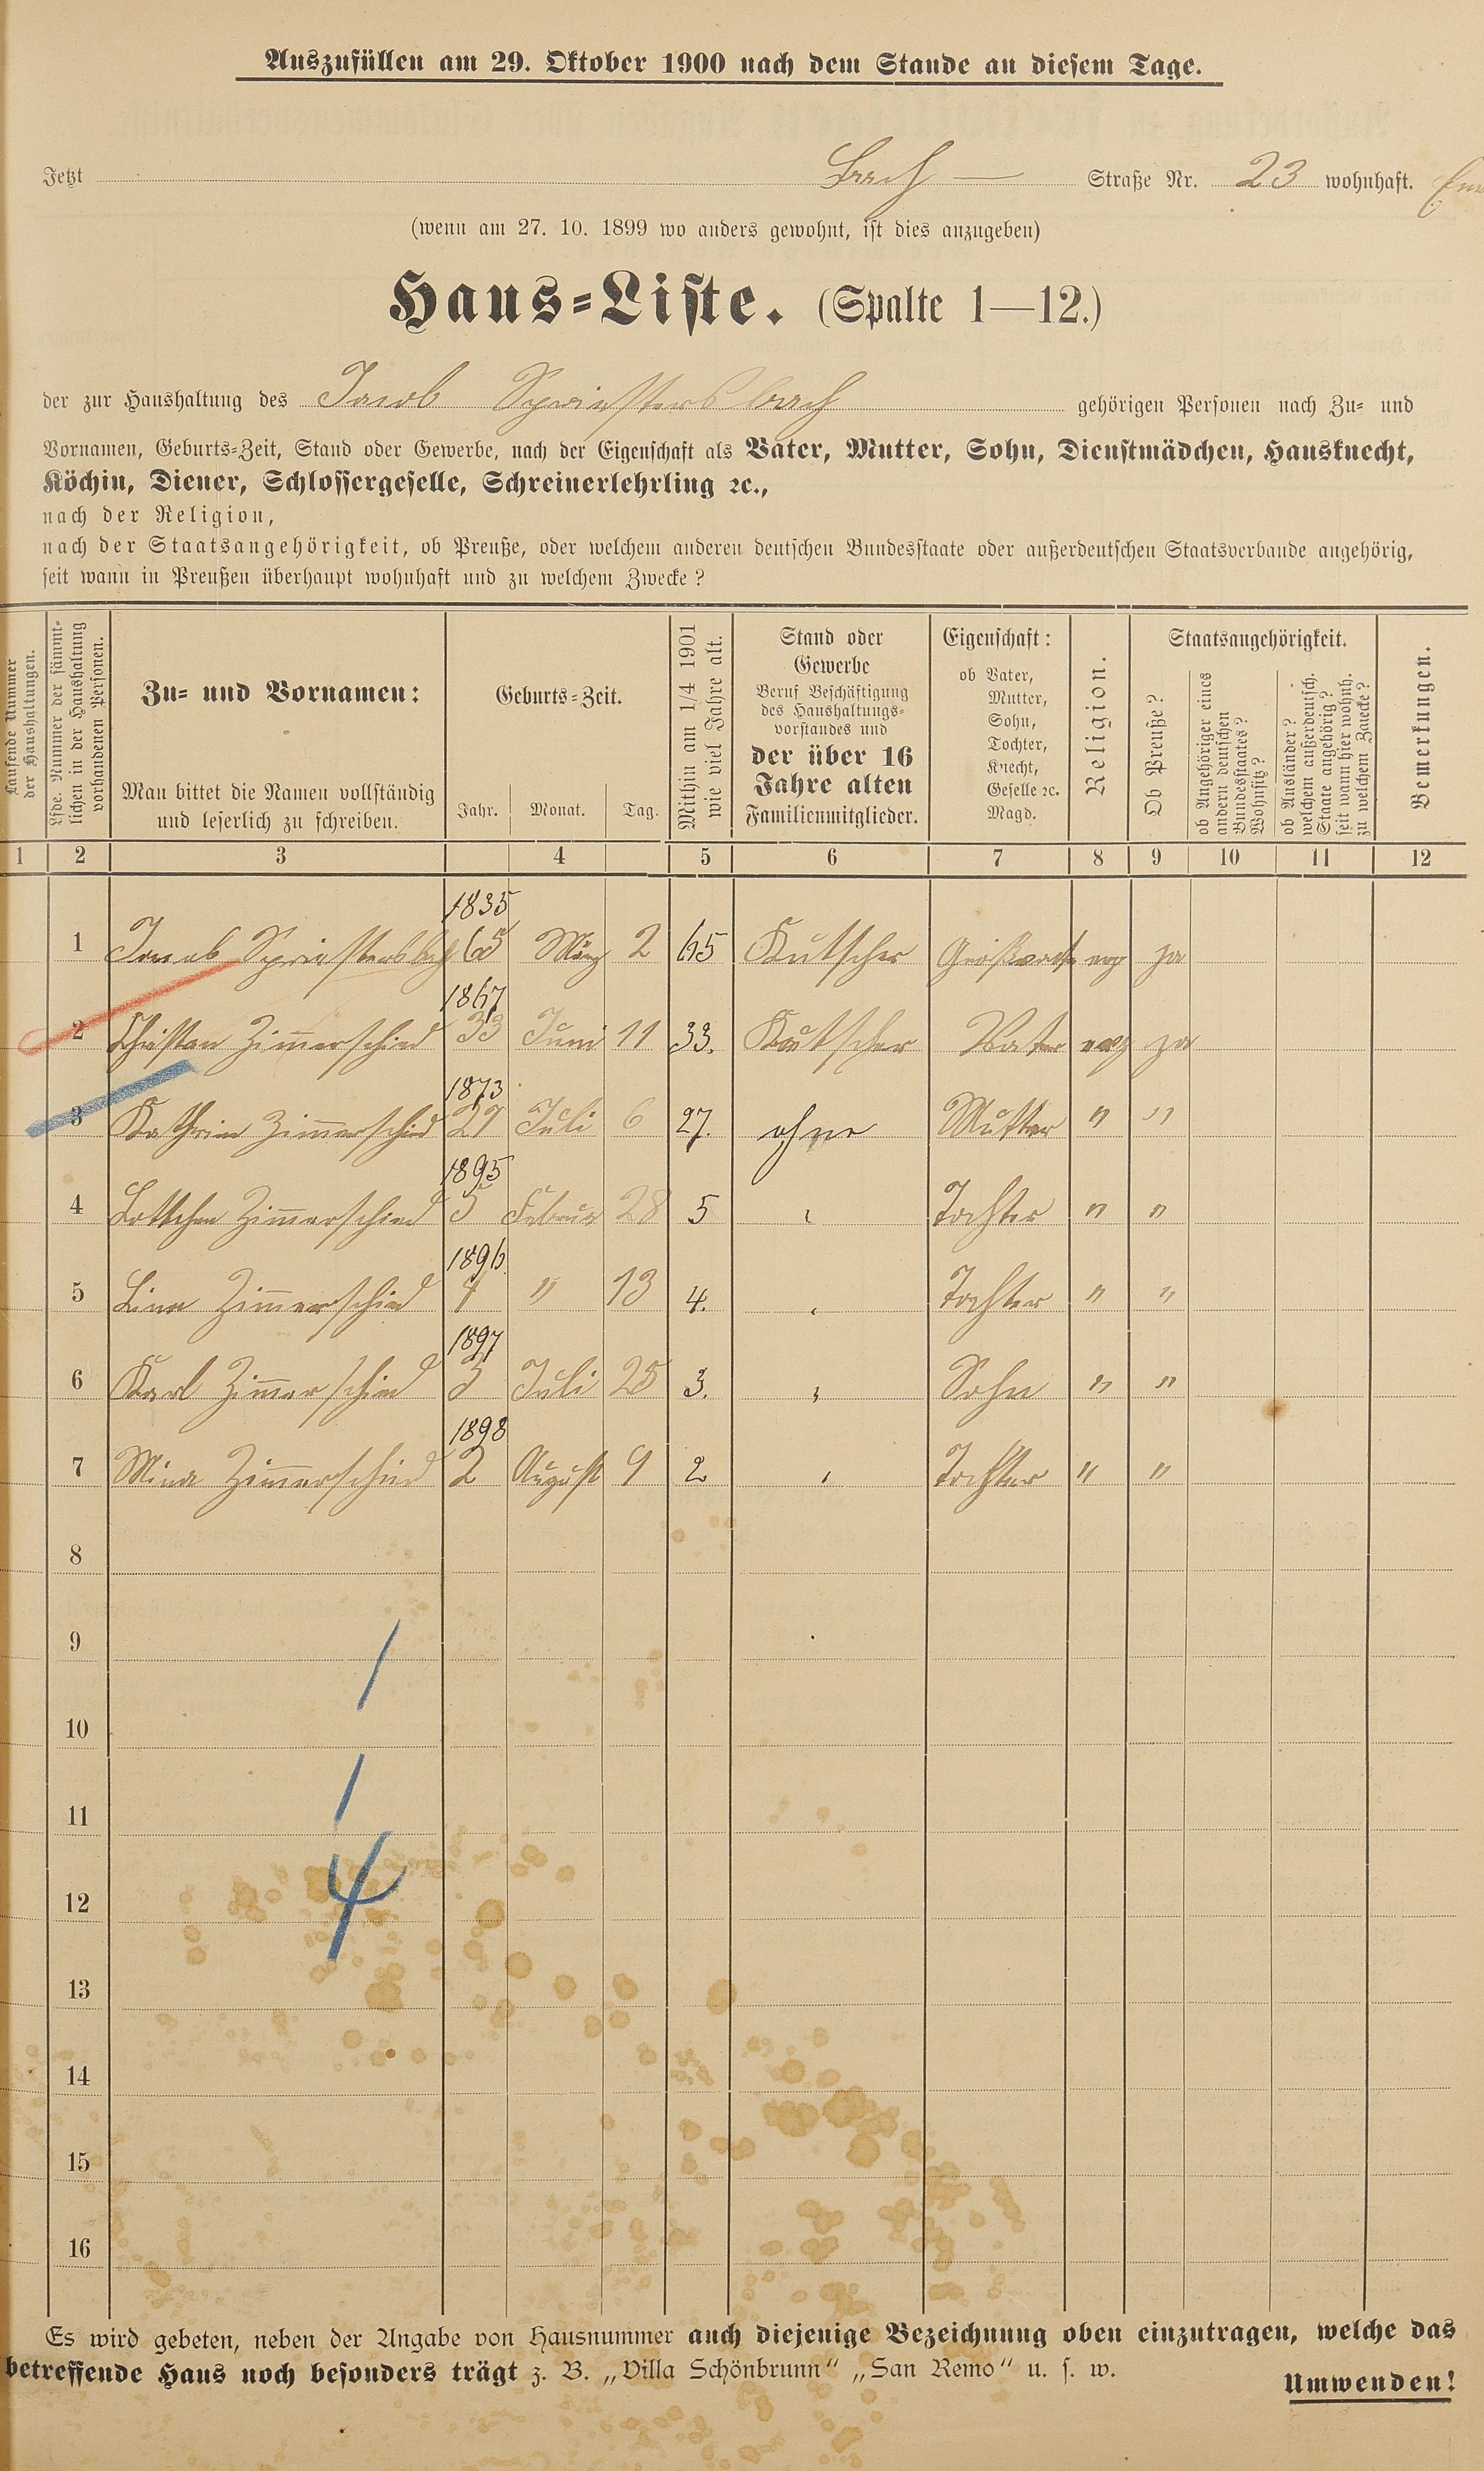 Auszufüllen am 29. Oktober 1900 nach dem Stande an diesem Tage.
Jetzt Bach — Straße Nr. 23 wohnhaft.
(wenn am 27. 10. 1899 wo anders gewohnt, ist dies anzugeben)
Haus-Liste. (Spalte 1—12.)
der zur Haushaltung des Jacob Spriestersbach gehörigen Personen nach Zu- und
Vornamen, Geburts-Zeit, Stand oder Gewerbe, nach der Eigenschaft als Vater, Mutter, Sohn, Dienstmädchen, Hausknecht,
Köchin, Diener, Schlossergeselle, Schreinerlehrling ꝛc.,
nach der Religion,
nach der Staatsangehörigkeit, ob Preuße, oder welchem anderen deutschen Bundesstaate oder außerdeutschen Staatsverbande angehörig,
seit wann in Preußen überhaupt wohnhaft und zu welchem Zwecke?
Laufende Nummer
der Haushaltungen.
Lfde. Nummer der sämmt-
lichen in der Haushaltung
vorhandenen Personen.
Zu- und Vornamen:
Man bittet die Namen vollständig
und leserlich zu schreiben.
Geburts-Zeit.
Jahr. Monat. Tag.
Mithin am 1/4 1901
wie viel Jahre alt.
Stand oder
Gewerbe
Beruf Beschäftigung
des Haushaltungs-
vorstandes und
der über 16
Jahre alten
Familienmitglieder.
Eigenschaft:
ob Vater,
Mutter,
Sohn,
Tochter,
Knecht,
Geselle ꝛc.
Magd.
Religion.
Staatsangehörigkeit.
Ob Preuße?
ob Angehöriger eines
andern deutschen
Bundesstaates?
Wohnsitz?
ob Ausländer?
welchem außerdeutsch.
Staate angehörig?
seit wann hier wohnh.
zu welchem Zwecke?
Bemerkungen.
1 2 3 4 5 6 7 8 9 10 11 12
1835
1 Jacob Spriestersbach 65 März 2 65 Kutscher Großvater evg ja
1867
2 Christian Zimmerschied 33 Juni 11 33. Kutscher Vater evg ja
1873
3 Kathrine Zimmerschied 27 Juli 6 27. ohne Mutter " "
1895
4 Lottchen Zimmerschied 5 Februar 28 5 Tochter " "
1896
5 Lina Zimmerschied 4 " 13 4. Tochter " "
1897
6 Karl Zimmerschied 3 Juli 25 3. Sohn " "
1898
7 Mina Zimmerschied 2 August 9 2 Tochter " "
8
9
10
11
12
13
14
15
16
Es wird gebeten, neben der Angabe von Hausnummer auch diejenige Bezeichnung oben einzutragen, welche das
betreffende Haus noch besonders trägt z. B. „Villa Schönbrunn“ „San Remo“ u. s. w.
Umwenden!